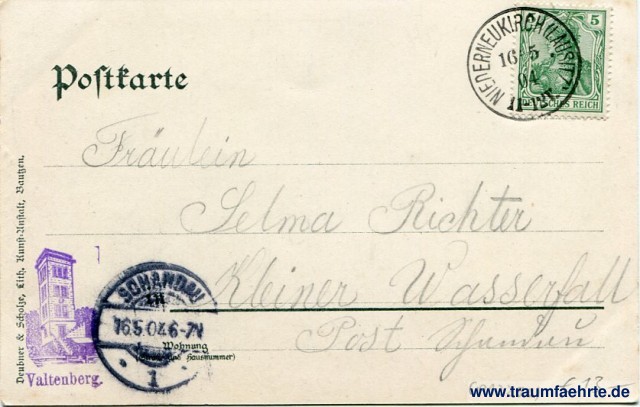 Postkarte
NIEDERNEUKIRCH (LAUSITZ)
16 5
04
11-12V.
5
DEUTSCHES REICH
Fräulein
Selma Richter
Kleiner Wasserfall
Post Schandau
SCHANDAU
16.5.04.6-7N
1
Wohnung
(Straße und Hausnummer)
Valtenberg.
Deubner & Scholze, Lith. Kunst-Anstalt, Bautzen.
www.traumfaehrte.de